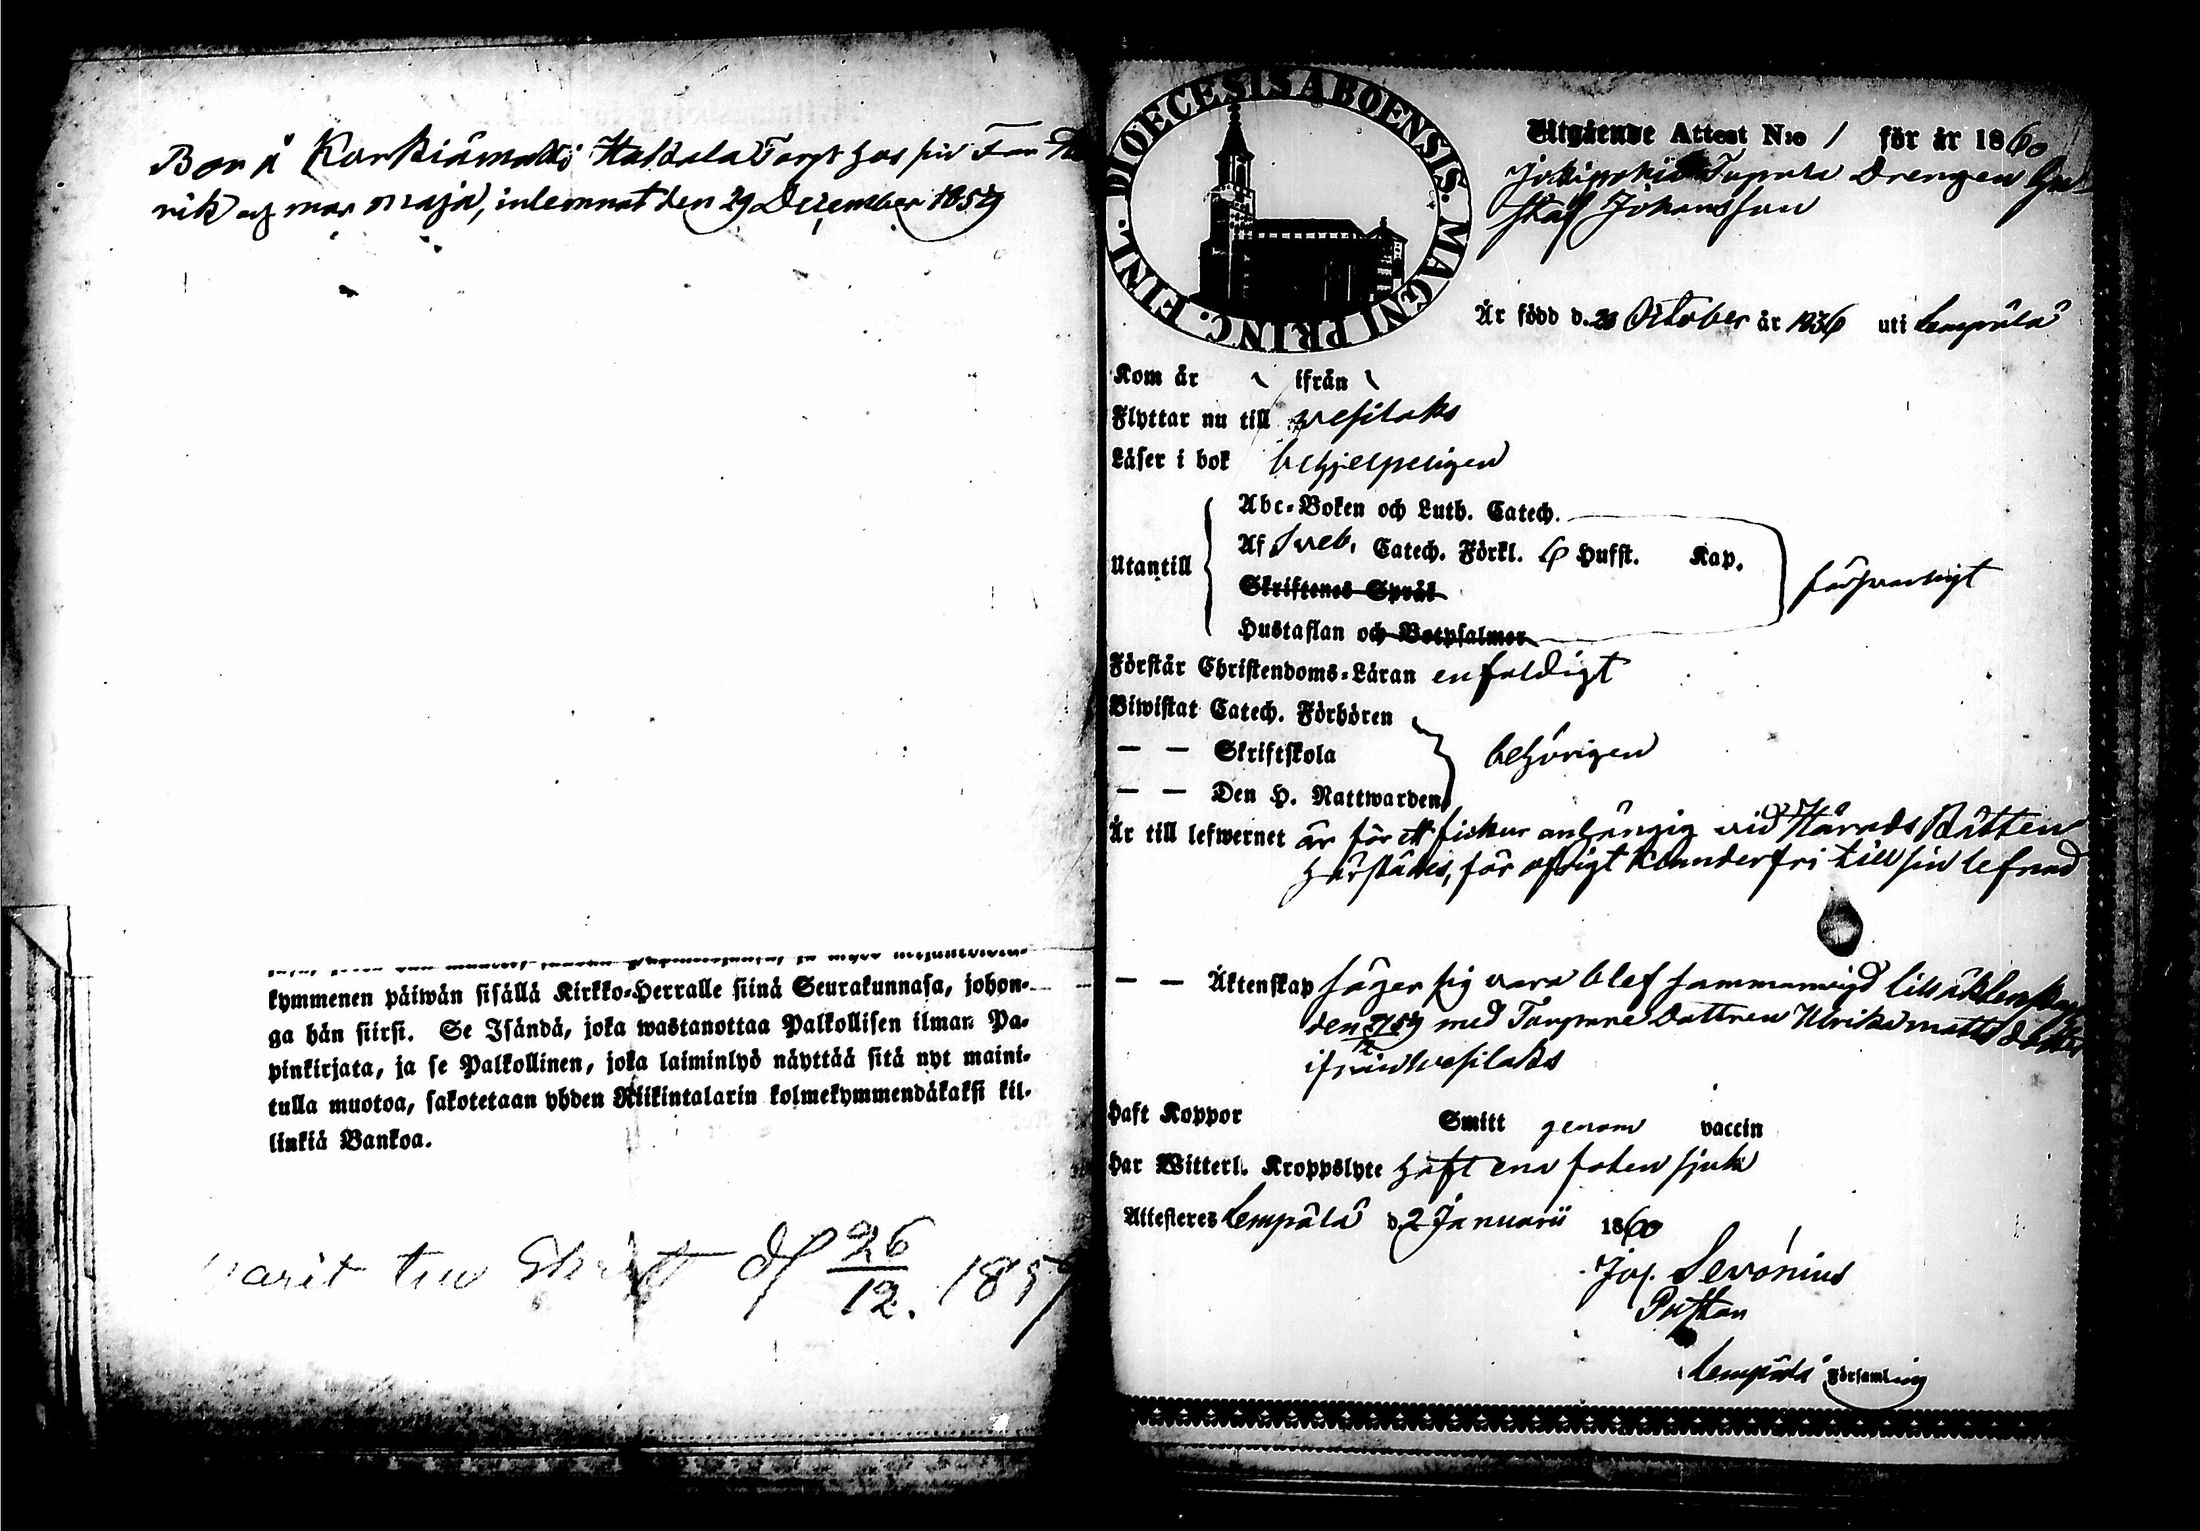 Bor å Karkiämatti Hakala Torp hos sin Far
rik och mor Maja, inlemnat den 29 December 1859
kymmenen päiwän sisällä Kirkko-Herralle siinä Seurakunnasa, johon-
ga hän siirsi. Se Isändä, joka wastanottaa Palkollisen ilman Pa-
pinkirjata, ja se Palkollinen, joka laiminlyö näyttää sitä nyt maini-
tulla muotoa, sakotetaan yhden Riikintalarin kolmekymmendäkaksi kil-
linkiä Bankoa.
warit till Skrift d 26/12. 1859
DIOECESIS ABOENSIS. MAGNI PRINC. FINL.
Utgående Attest N:o 1 för år 1860
Drengen Gu
staf Johansson
Är född d. 28 October år 1836 uti Lempälä
Kom år ifrån
Flyttar nu till Wesilaks
Läser i bok behjelpeligen
Utantill
Abc-Boken och Luth. Catech.
Af Sveb. Catech. Förkl. 6 Hufst. Kap.
Skriftenes Språk
Hustaflan och Botpsalmer
försvarligt
Förstår Christendoms-Läran enfaldigt
Biwistat Catech. Förhören
— — Skriftskola
behörigen
— — Den H. Nattwarden
Är till lefwernet är för anhängig vid Härads Rätten
härstädes, för öfrigt klanderfri till sin lefnad
— — Äktenskap säger sig vara blef sammanvigd till äktenskap
den 31/12 59 med Torpare Dottren Ulrika Matts dotter
ifrån Wesilaks
Haft Koppor Smitt genom vaccin
Har Witterl. Kroppslyte haft ena foten sjuk
Attesteres Lempälä d. 2 Januarii 1860
Jos. Sevonius
Pastor
Lempälä Församling